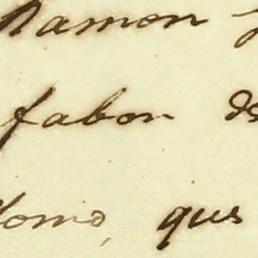 Ramon
fabon de
como, que